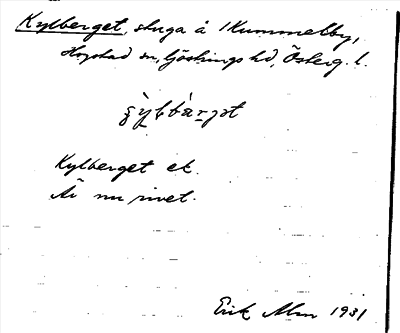 Kylberget, stuga å Kummelby,
Hogstad sn, Göstrings hd, Österg. l.
Kylberget ek.
Är nu rivet.
Erik Alm 1931